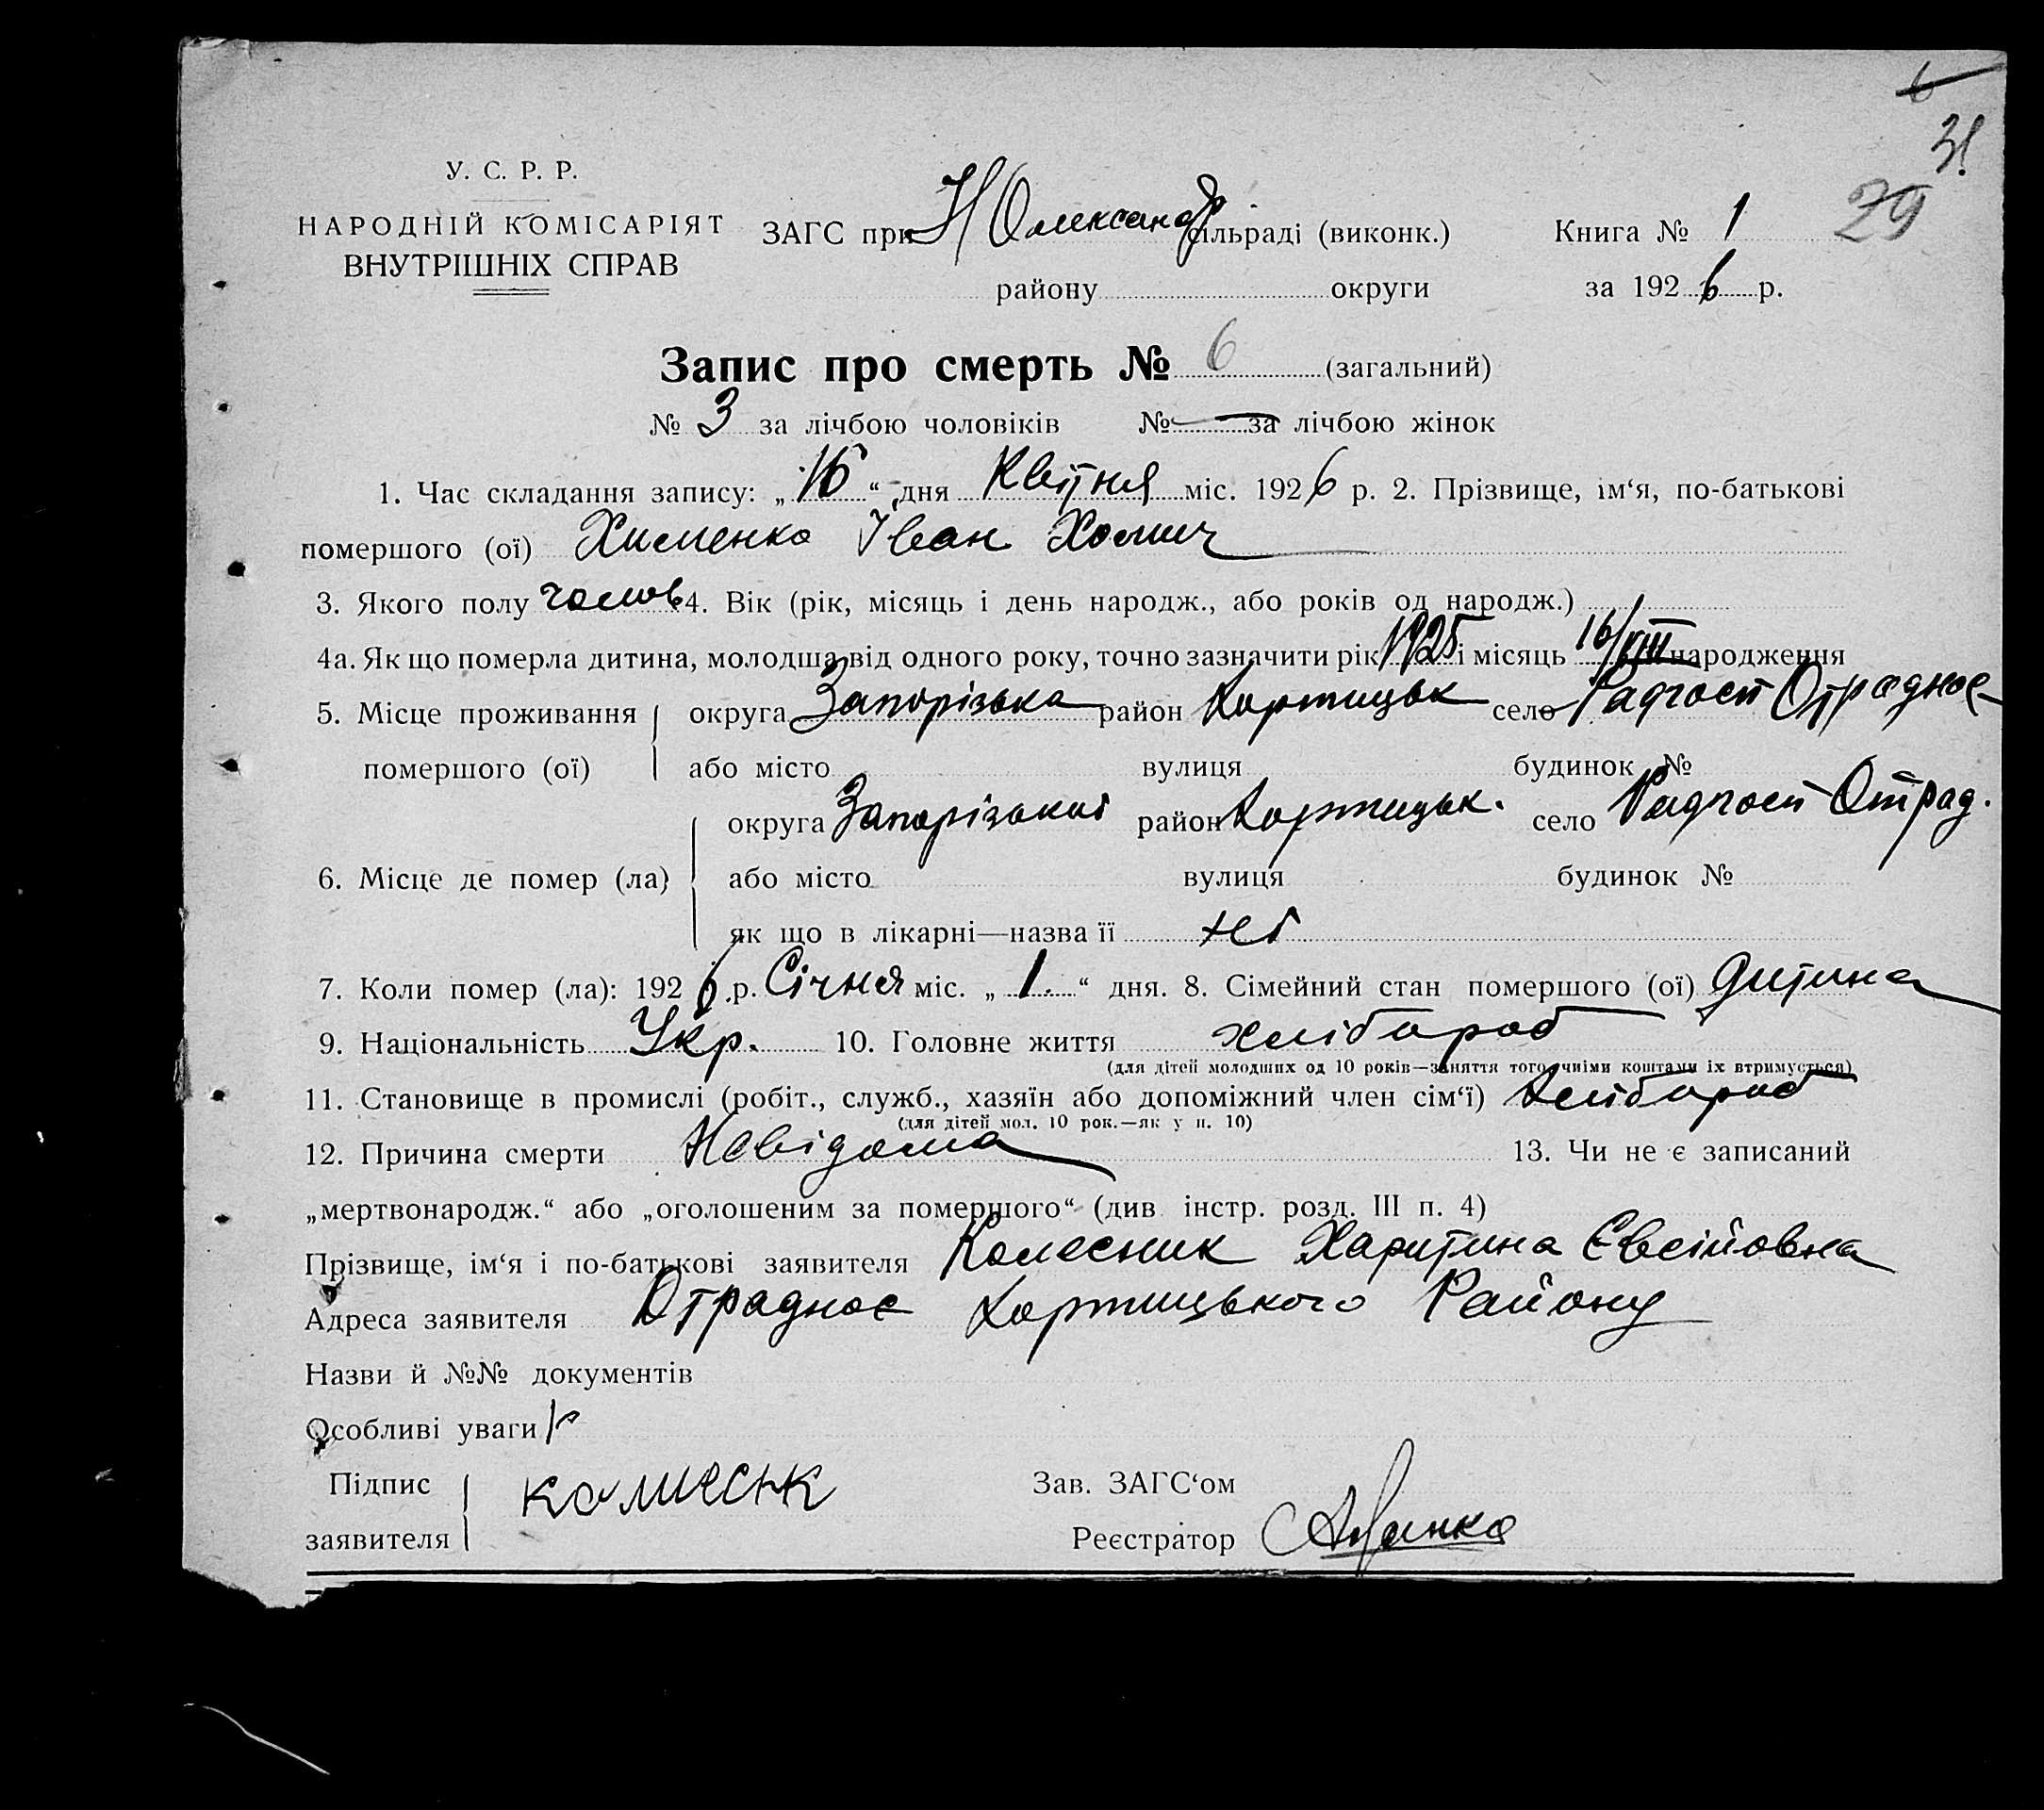 6
31.
29
У. С. Р. Р.
НАРОДНІЙ КОМІСАРІЯТ
ВНУТРІШНІХ СПРАВ
ЗАГС при Н Олександр. сільраді (виконк.) Книга № 1
району округи за 1926 р.
Запис про смерть № 6 (загальний)
№ 3 за лічбою чоловіків № — за лічбою жінок
1. Час складання запису: „16“ дня Квітня міс. 1926 р. 2. Прізвище, ім‘я, по-батькові
помершого (ої) Хименко Іван Хомич
3. Якого полу чолов. 4. Вік (рік, місяць і день народж., або років од народж.)
4а. Як що померла дитина, молодша від одного року, точно зазначити рік 1925 і місяць 16/VIII народження
5. Місце проживання округа Запорізька район Хортицьк село Радгосп Отрадноє
помершого (ої) або місто вулиця будинок №
округа Запорізької район Хортицьк. село Радгосп Отрад.
6. Місце де помер (ла) або місто вулиця будинок №
як що в лікарні—назва її ні
7. Коли помер (ла): 1926 р. Січня міс. „1.“ дня. 8. Сімейний стан помершого (ої) дитина
9. Національність Укр. 10. Головне життя хлібороб
(для дітей молодших од 10 років—заняття того, чиїми коштами їх втримується)
11. Становище в промислі (робіт., служб., хазяїн або допоміжний член сім‘ї) хлібороб
(для дітей мол. 10 рок.—як у п. 10)
12. Причина смерти Невідома 13. Чи не є записаний
„мертвонародж.“ або „оголошеним за помершого“ (див. інстр. розд. III п. 4)
Прізвище, ім‘я і по-батькові заявителя Колесник Харитина Євсійовна
Адреса заявителя Отрадноє Хортицького Району
Назви й №№ документів
Особливі уваги
Підпис заявителя колиеснк Зав. ЗАГС‘ом
Реєстратор